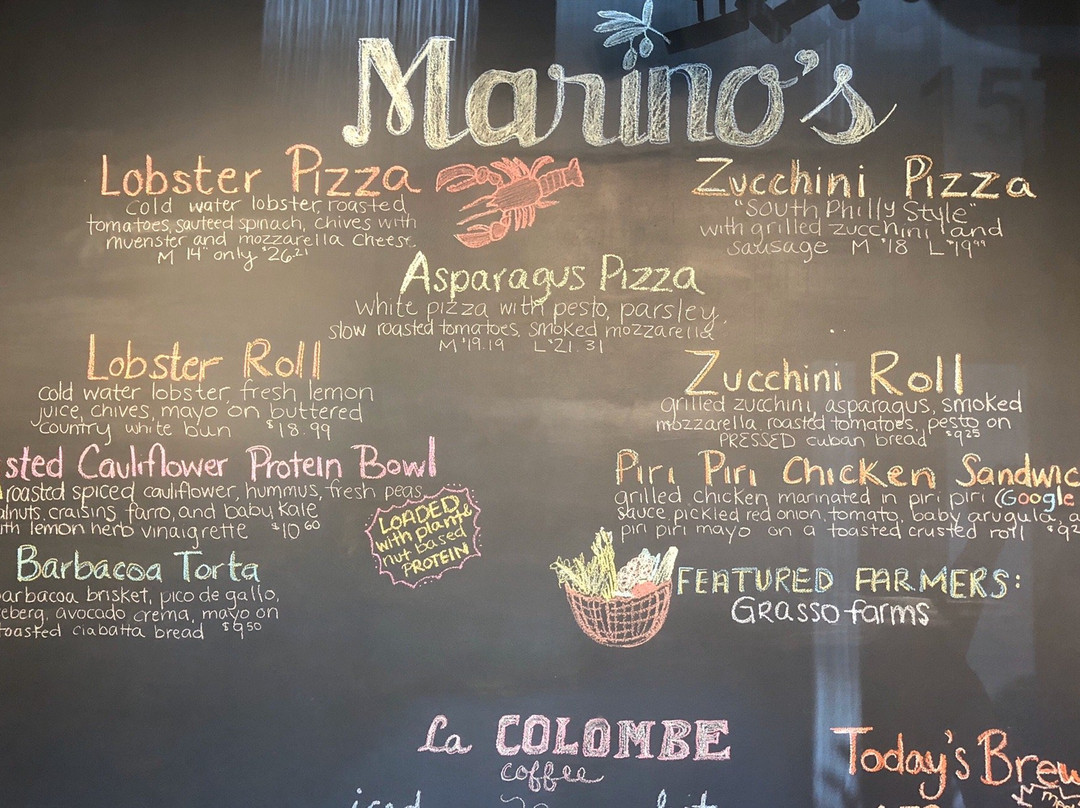 Marino's
Lobster Pizza
cold water lobster, roasted
tomatoes, sauteed spinach, chives with
muenster and mozzarella cheese.
M 14" only $26.21
Zucchini Pizza
"South Philly Style"
with grilled zucchini and
sausage M $18 L $19⁹⁹
Asparagus Pizza
white pizza with pesto, parsley,
slow roasted tomatoes, smoked mozzarella
M $19.19 L $21.31
Lobster Roll
cold water lobster, fresh lemon
juice, chives, mayo on buttered
country white bun $18.99
Zucchini Roll
grilled zucchini, asparagus, smoked
mozzarella, roasted tomatoes, pesto on
PRESSED cuban bread $9²⁵
sted Cauliflower Protein Bowl
roasted spiced cauliflower, hummus, fresh peas,
alnuts, craisins, farro, and baby kale
ith lemon herb vinaigrette $10⁶⁰
LOADED
with plant &
nut based
PROTEIN
Piri Piri Chicken Sandwic
grilled chicken marinated in piri piri (Google
sauce, pickled red onion, tomato, baby arugula, a
piri piri mayo on a toasted crusted roll $9²
Barbacoa Torta
barbacoa brisket, pico de gallo,
ceberg, avocado crema, mayo on
toasted ciabatta bread $9⁵⁰
FEATURED FARMERS:
Grasso farms
La COLOMBE
coffee
Today's Brew
iced